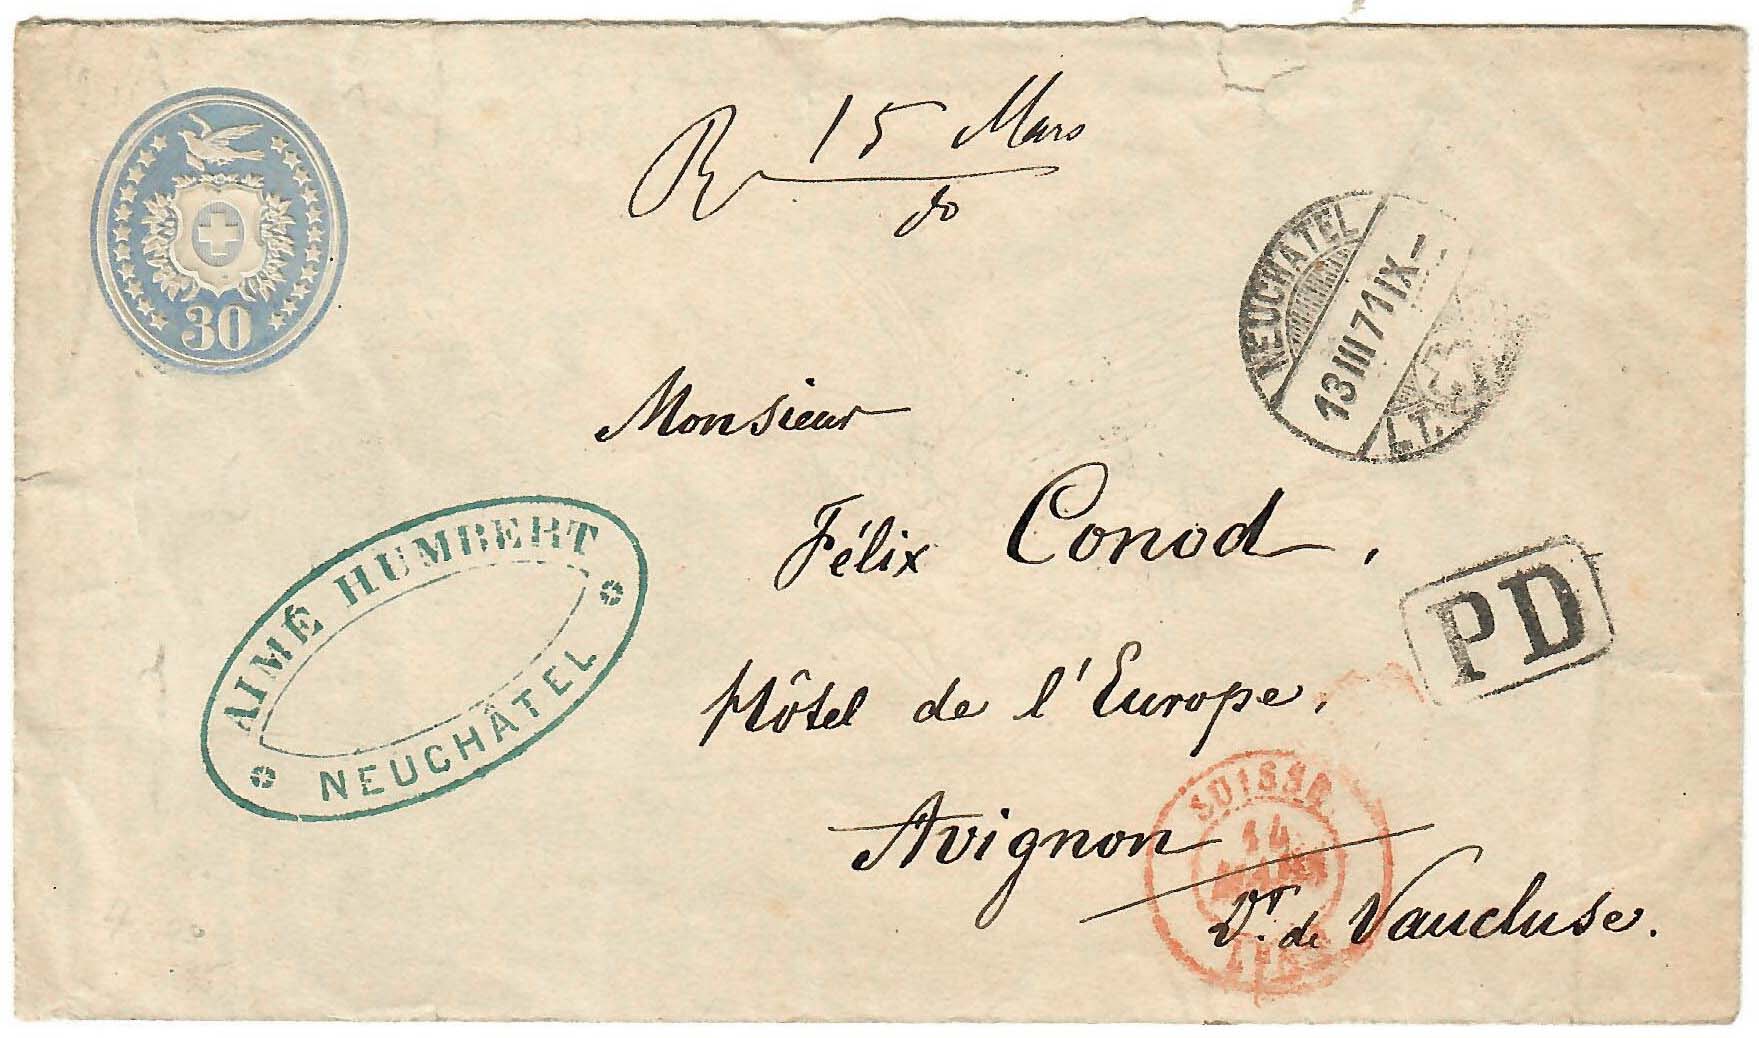 30
R 15 Mars
do
NEUCHATEL
13 III 71 IX -
L.T.
Monsieur
Félix Conod,
Hôtel de l'Europe,
Avignon
Dt. de Vaucluse.
AIMÉ HUMBERT
NEUCHÂTEL
PD
SUISSE
14